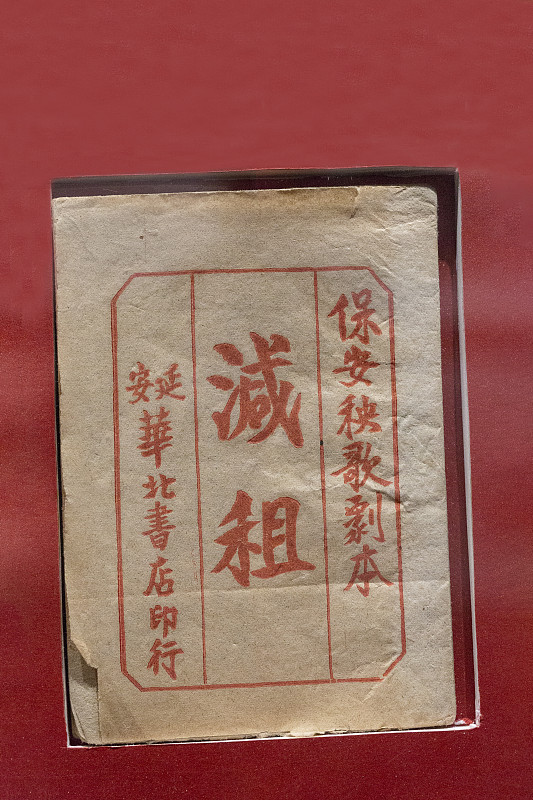 保安秧歌剧本
減租
延安
華北書店印行